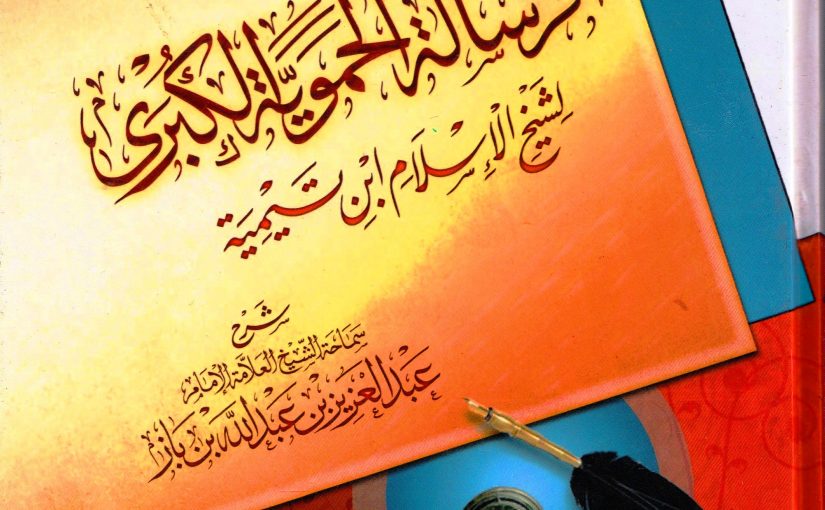 الرسالة الحموية الكبرى
لشيخ الإسلام ابن تيمية
شرح
سماحة الشيخ العلامة الإمام
عبد العزيز بن عبد الله بن باز